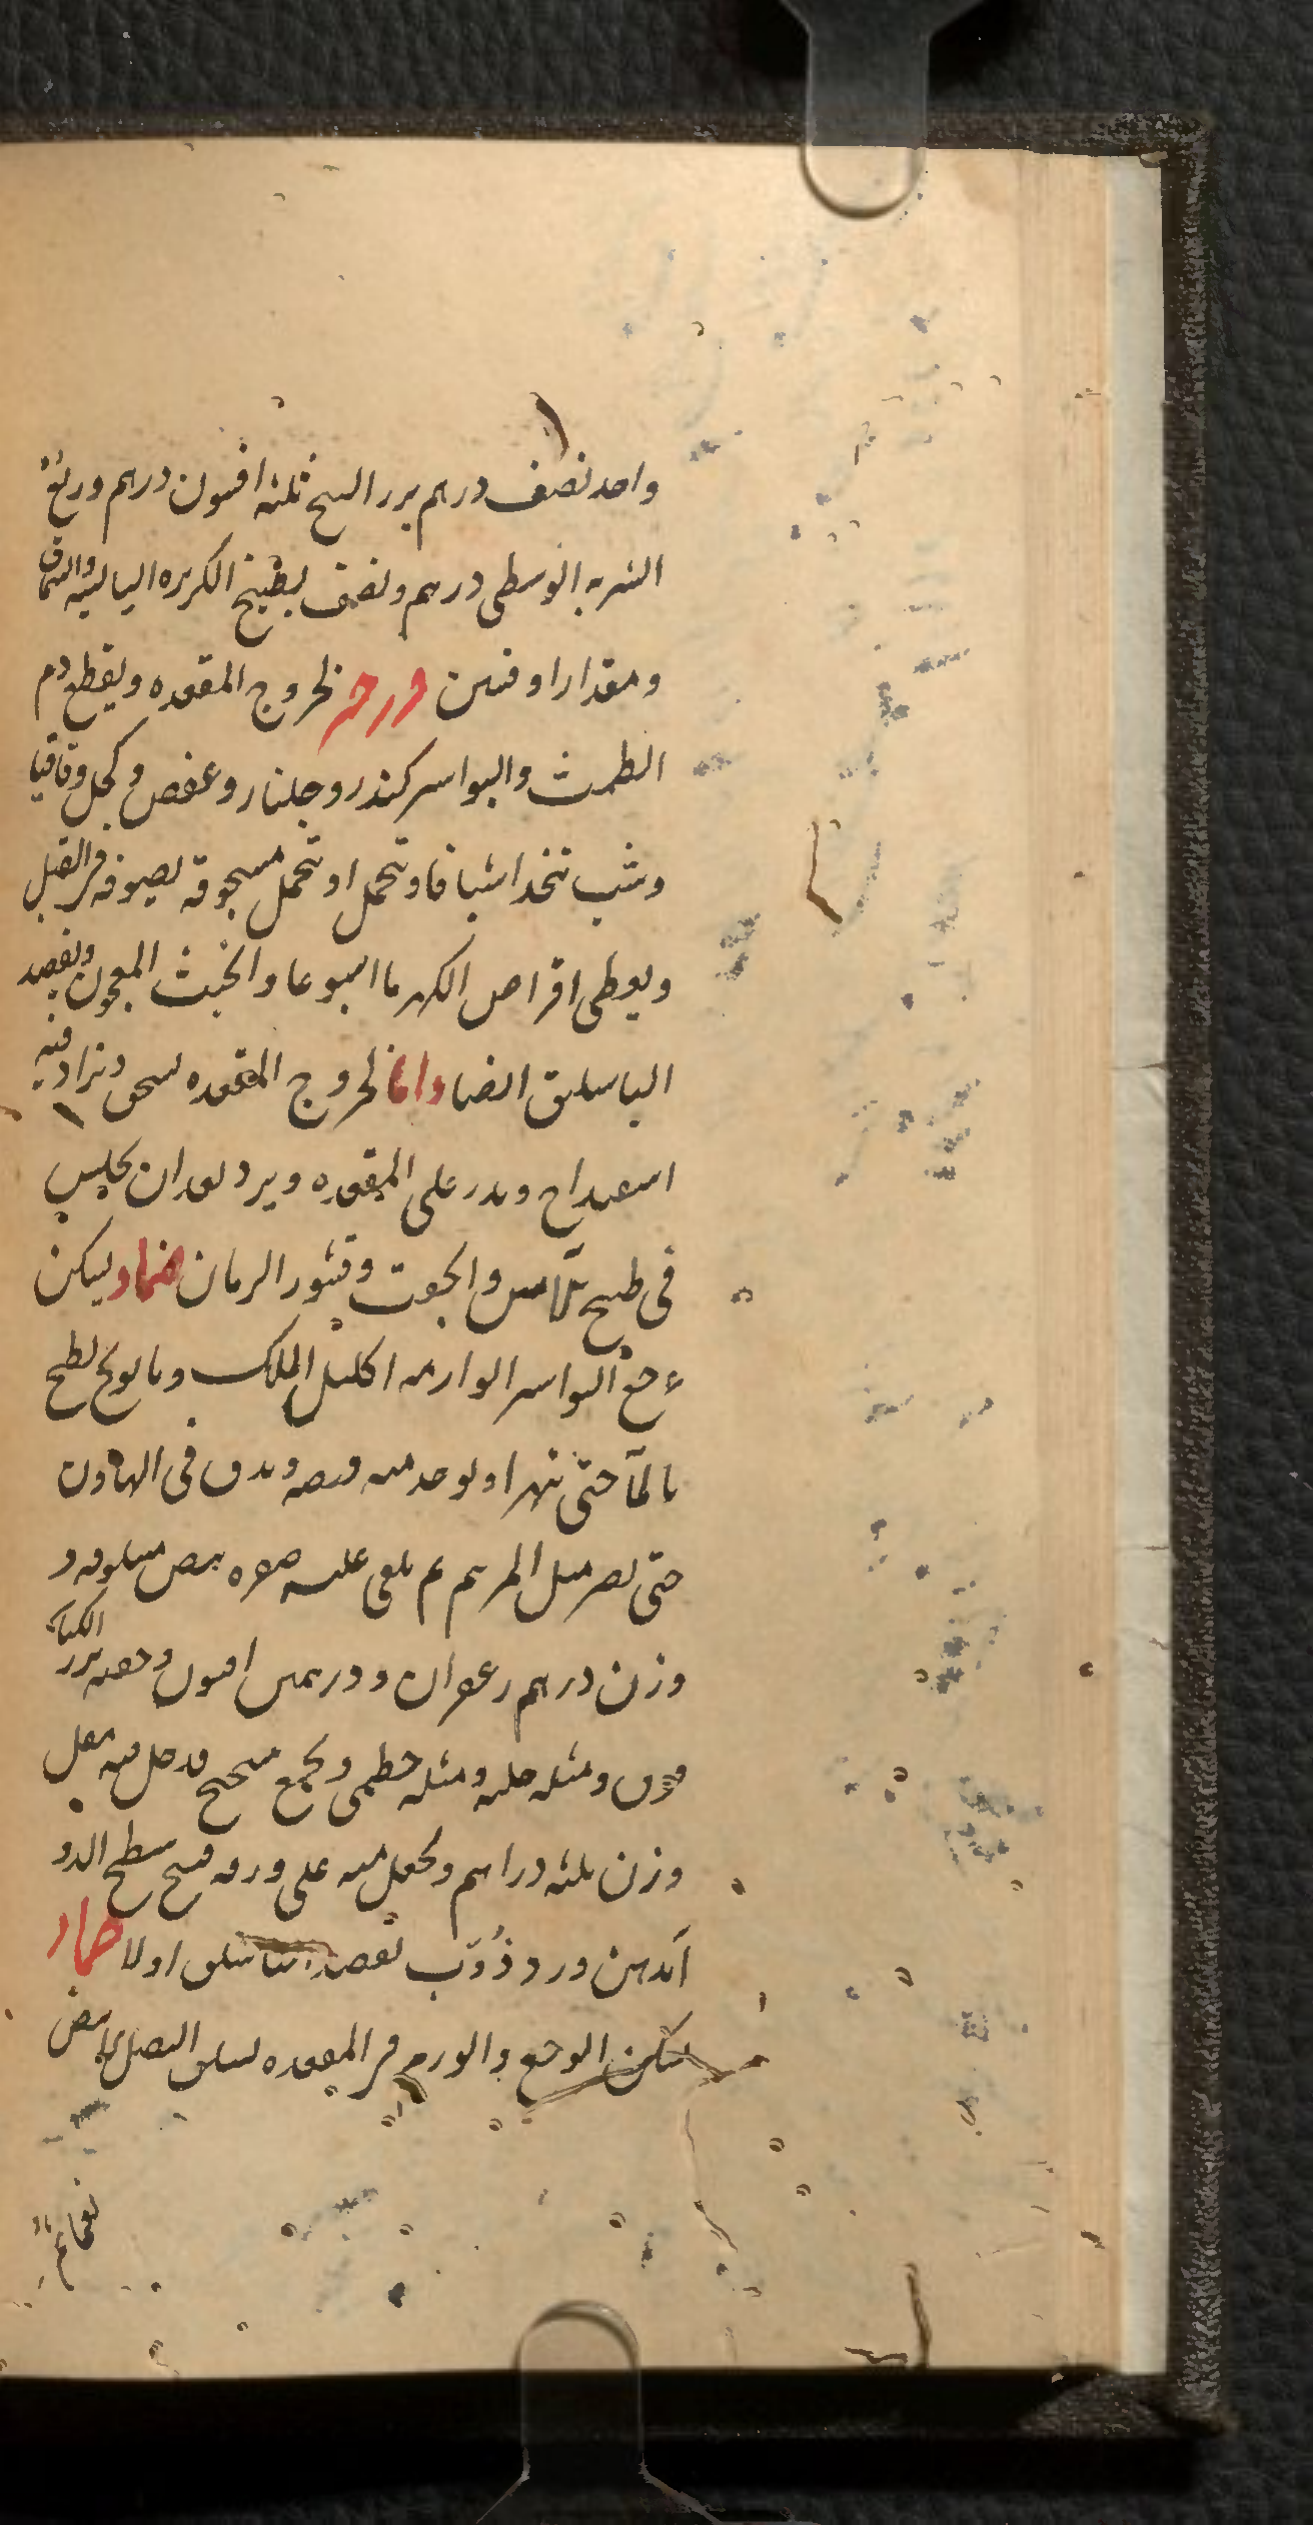 واحد نصف درهم بزر البنج ثلثه افيون درهم وربع
الشربه الوسطى درهم ونصف بطبيخ الكزبره اليابسه والسماق
ومقدار اوقيتين لخروج المقعده ويقطع دم
الطمث والبواسير كندر وجلنار وعفص وكحل وقاقيا
وشب تتخذ اشيافا وتحمل او تحمل مسحوقه بصوفه في القبل
ويعطى اقراص الكهربا اسبوعا والخبث المعجون ويفصد
الباسليق ايضا لخروج المقعده يسحق ويزاد فيه
اسفيداج ويذر على المقعده ويرد بعد ان يجلس
في طبيخ الآس والجفت وقشور الرمان ضماد يسكن
وجع البواسير الوارمه اكليل الملك وبابونج يطبخ
بالمآ حتى يتهرا ويوخذ منه قبضه ويدق في الهاون
حتى يصير مثل المرهم ثم يلقى عليه صفره بيض مسلوقه و
وزن درهم زعفران ودرهمين افيون بزر الكتان
ومثله حلبه ومثله خطمى ويجمع فيه مقل
وزن ثلثه دراهم ويجعل منه على ورقه سطح
بدهن ورد اولا ضماد
يسكن الوجع والورم في المقعده يسلق البصل الابيض
نعما ثم